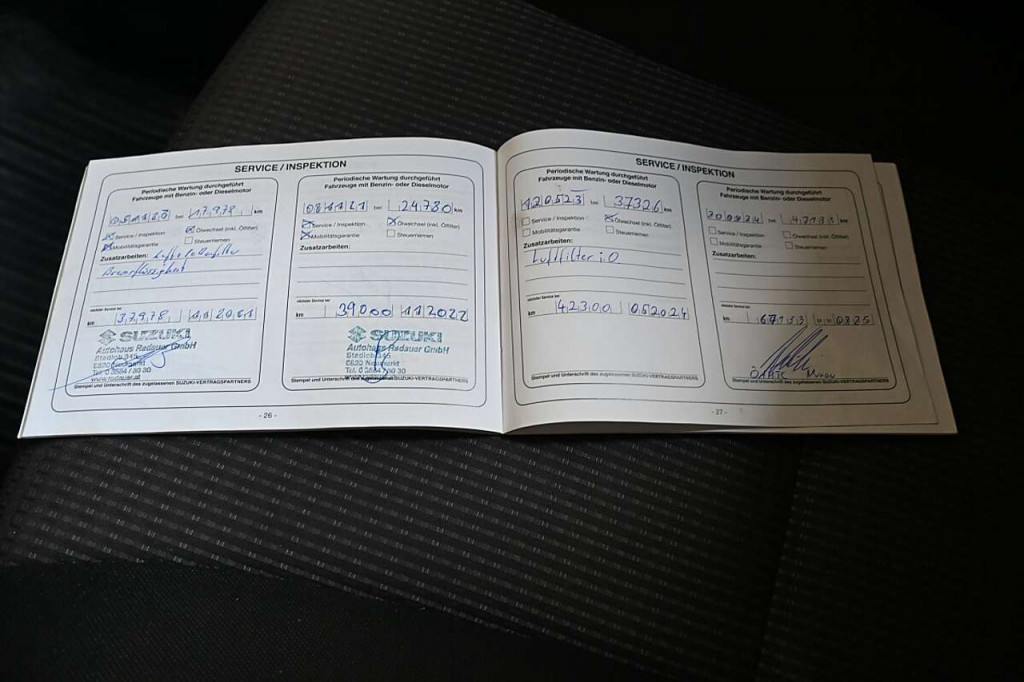 SERVICE / INSPEKTION
Periodische Wartung durchgeführt
Fahrzeuge mit Benzin- oder Dieselmotor
bei 17.978 km
Service / Inspektion
Ölwechsel (inkl. Ölfilter)
Mobilitätsgarantie
Steuerriemen
Zusatzarbeiten:
nächster Service bei
km 37.978
SUZUKI
Autohaus Radauer GmbH
Stadlob 345
8820 Neumarkt
Tel. 0 3584 / 30 30
www.radauer.at
Stempel und Unterschrift des zugelassenen SUZUKI-VERTRAGSPARTNERS
Periodische Wartung durchgeführt
Fahrzeuge mit Benzin- oder Dieselmotor
081121 bei 24.780 km
Service / Inspektion
Ölwechsel (inkl. Ölfilter)
Mobilitätsgarantie
Steuerriemen
Zusatzarbeiten:
nächster Service bei
km 39000 112022
SUZUKI
Autohaus Radauer GmbH
Stadlob 345
8820 Neumarkt
Tel. 0 3584 / 30 30
Stempel und Unterschrift des zugelassenen SUZUKI-VERTRAGSPARTNERS
- 26 -
SERVICE / INSPEKTION
Periodische Wartung durchgeführt
Fahrzeuge mit Benzin- oder Dieselmotor
120523 bei 37326 km
Service / Inspektion
Ölwechsel (inkl. Ölfilter)
Mobilitätsgarantie
Steuerriemen
Zusatzarbeiten:
Luftfilter i.O
nächster Service bei
km 42300 052024
Stempel und Unterschrift des zugelassenen SUZUKI-VERTRAGSPARTNERS
Periodische Wartung durchgeführt
Fahrzeuge mit Benzin- oder Dieselmotor
bei km
Service / Inspektion
Ölwechsel (inkl. Ölfilter)
Mobilitätsgarantie
Steuerriemen
Zusatzarbeiten:
nächster Service bei
km 0825
Stempel und Unterschrift des zugelassenen SUZUKI-VERTRAGSPARTNERS
- 27 -